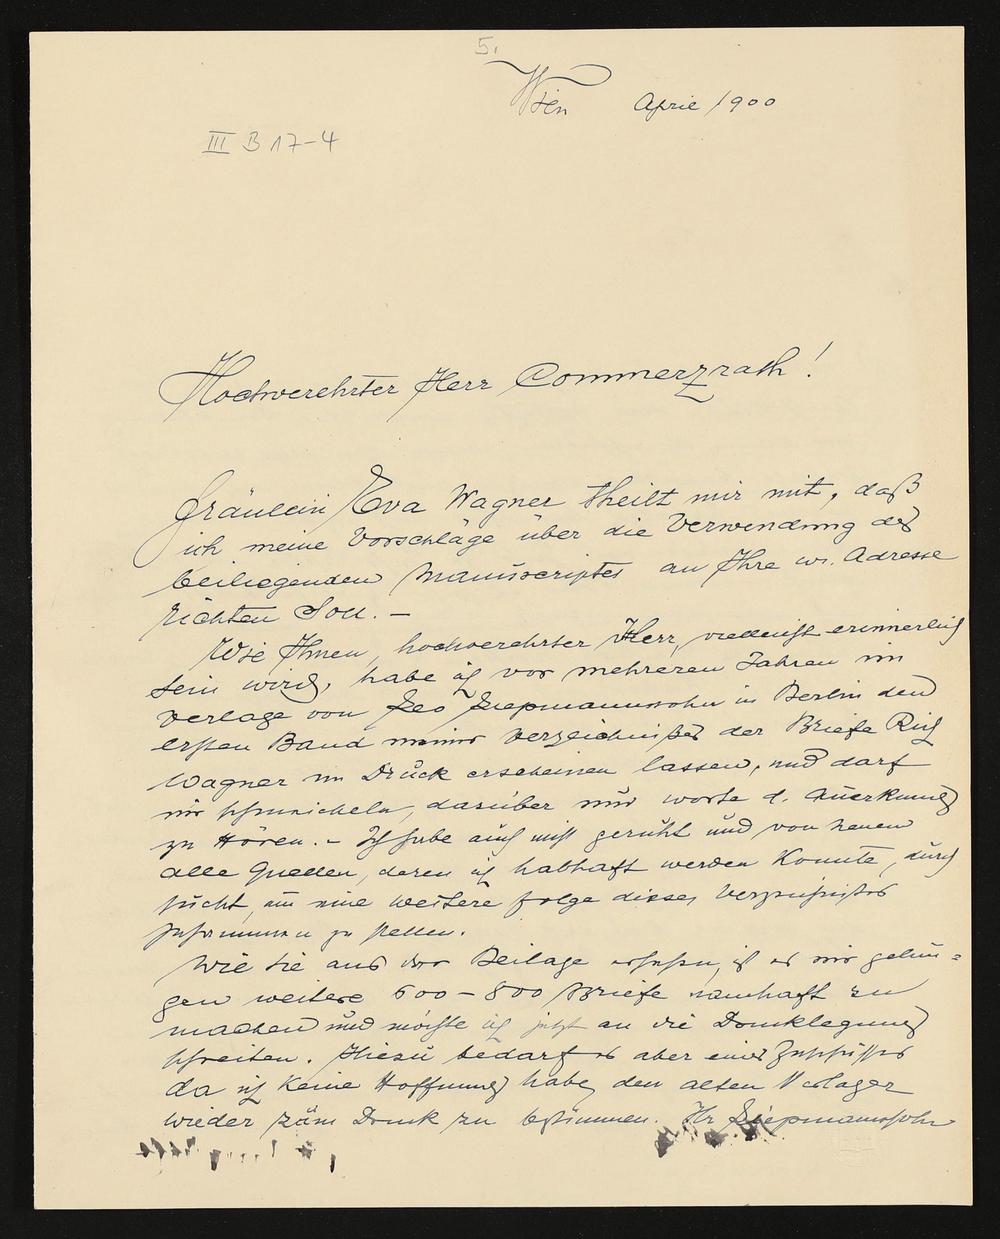 5.
Wien April 1900
III B 17-4
Hochverehrter Herr Commerzrath!
Fräulein Eva Wagner theilt mir mit, daß
ich meine Vorschläge über die Verwendung des
beiliegenden Manuscriptes an Ihre w. Adresse
richten soll. -
Wie Ihnen, hochverehrter Herr, vielleicht erinnerlich
sein wird, habe ich vor mehreren Jahren im
Verlage von Leo Liepmannssohn in Berlin den
ersten Band meines Verzeichnißes der Briefe Rich
Wagner im Druck erscheinen lassen, und darf
mir schmeicheln, darüber nur worte d. Anerkennung
zu Hören. - Ich habe auch nicht geruht und von neuem
alle Quellen, deren ich habhaft werden konnte, durch
sucht, um eine weitere Folge dieses Verzeichnisses
zusammen zu stellen.
Wie Sie aus der Beilage ersehen, ist es mir gelun=
gen weitere 600 - 800 Briefe namhaft zu
machen und möchte ich jetzt an die Drucklegung
schreiten. Hiezu bedarf es aber eines Zuschusses
da ich keine Hoffnung habe, den alten Verleger
wieder zum Druck zu bestimmen. Hr Liepmannssohn